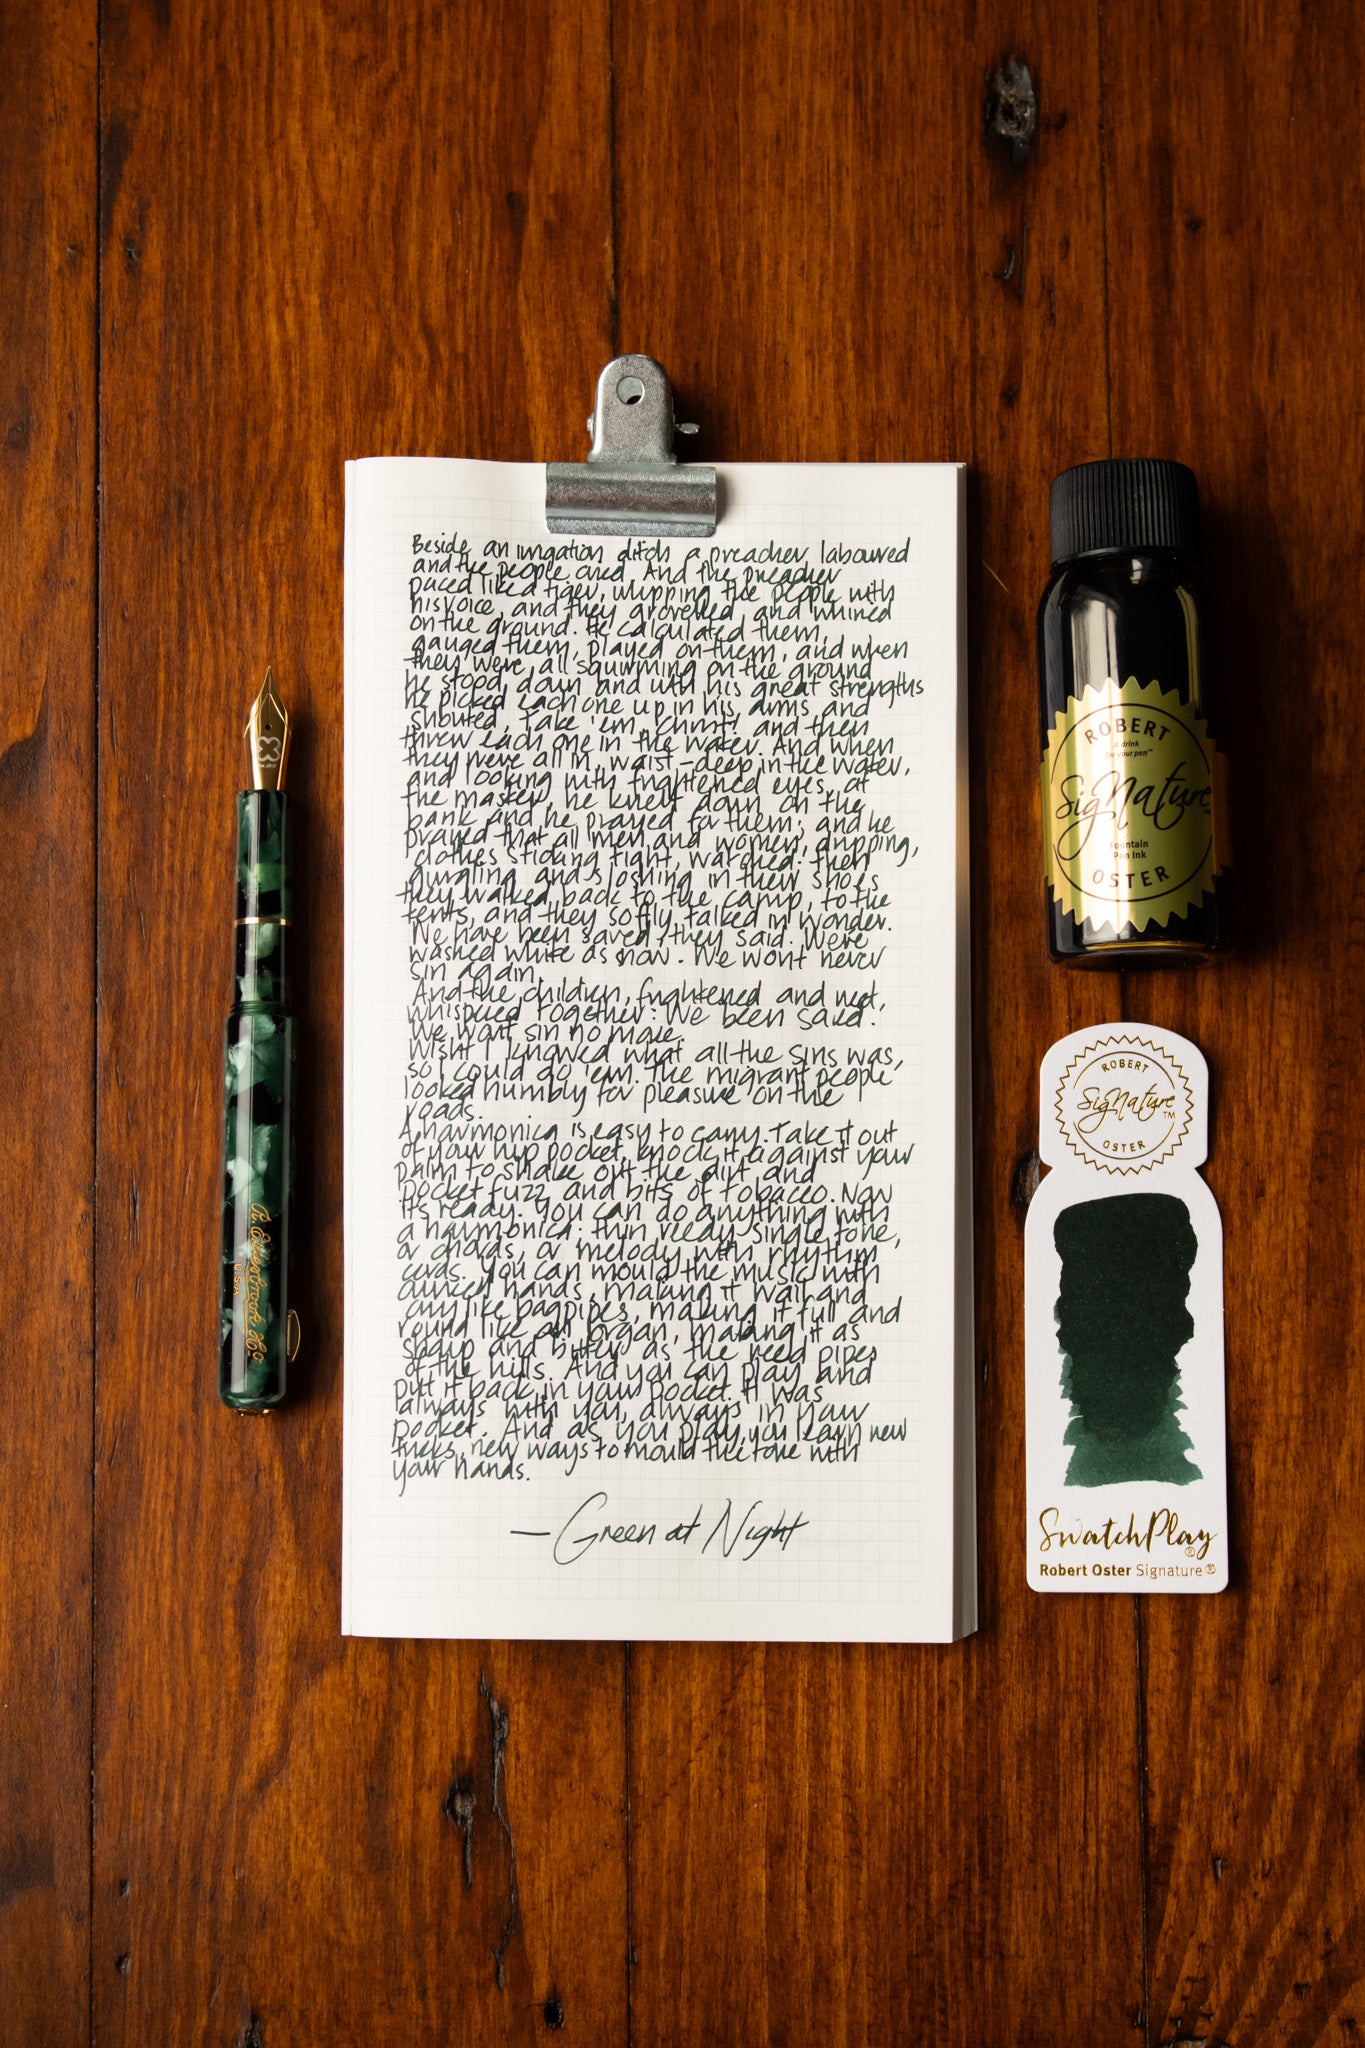 Beside an irrigation ditch a preacher laboured
and the people cried. And the preacher
paced like a tiger, whipping the people with
his voice, and they grovelled, and whined
on the ground. He calculated them,
gauged them, played on them, and when
they were all squirming on the ground
he stood down and with his great strengths
he picked each one up in his arms and
shouted, Take 'em, Christ! and then
threw each one in the water. And when
they were all in, waist-deep in the water,
and looking with frightened eyes, at
the master, he knelt down on the
bank and he prayed for them; and he
prayed that all men and women, dripping,
clothes sticking tight, watched: then
gurgling and sloshing in their shoes
they walked back to the camp, to the
tents, and they softly talked in wonder.
We have been saved, they said. We're
washed white as snow. We won't never
sin again.
And the children, frightened and wet,
whispered together: We been saved.
We won't sin no more.
Wisht I knowed what all the sins was,
so I could do 'em. The migrant people
looked humbly for pleasure on the
roads.
A harmonica is easy to carry. Take it out
of your hip pocket, knock it against your
palm to shake out the dirt and
pocket fuzz and bits of tobacco. Now
it's ready. You can do anything with
a harmonica: thin reedy single tone,
or chords, or melody with rhythm
You can mould the music with
hands, making it wail and
cry like bagpipes, making it full and
round like an organ, making it as
sharp and bitter as the reed pipes
of the hills. And you can play and
put it back in your pocket. It was
always with you, always in your
pocket. And as you play, you learn new
tricks, new ways to mould the tone with
your hands.
— Green at Night
R. Esterbrook & Co.
USA
ROBERT
A drink
for your pen™
SigNature
Fountain
Pen Ink
OSTER
ROBERT
SigNature™
OSTER
SwatchPlay®
Robert Oster Signature®